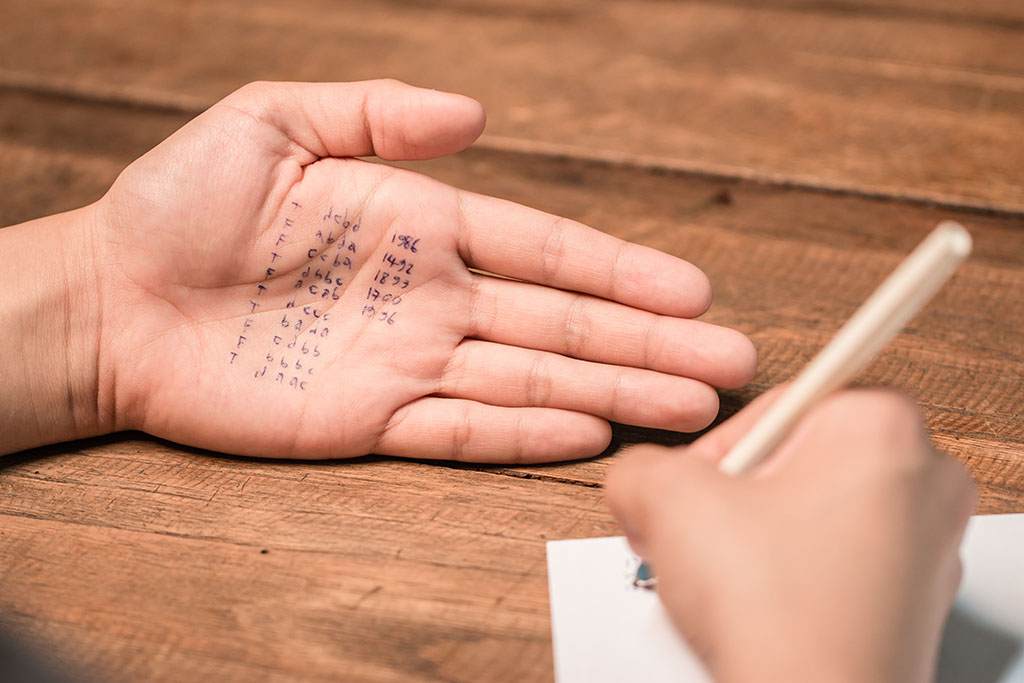 T
F
F
F
F
T
T
F
F
T
dcbd
abda
ccba
dbbc
acab
dccc
bada
cdbb
bbbc
daac
1986
1492
1893
1700
1996